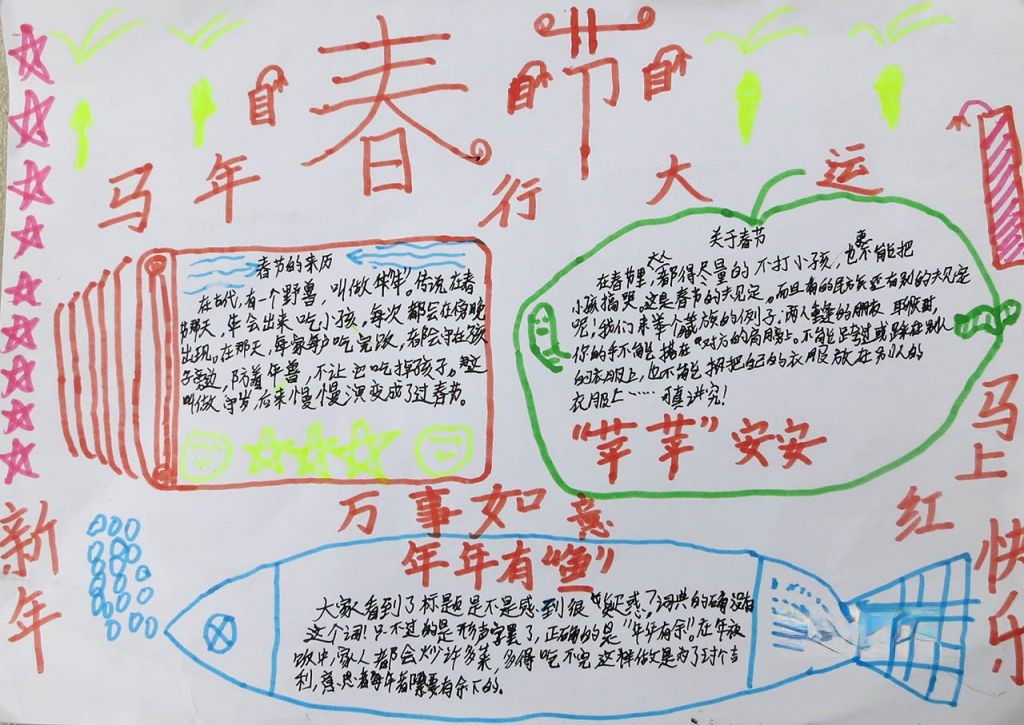 春节
马年行大运
春节的来历
在古代,有一个野兽,叫做"年"。传说,在春
节那天,年会出来吃小孩,每次都会在傍晚
出现。在那天,每家每户吃完饭,都会守在孩
子旁边,防着年兽,不让它吃掉孩子。这
叫做守岁,后来慢慢演变成了过春节。
关于春节
在春节里,大人都得尽量的不打小孩,也不能把
小孩搞哭。这是春节的大规定。而且有的民族还有别的大规定
呢!我们来举个藏族的例子:两人重逢的朋友
你的手不能搭在对方的肩膀上。不能跨过或踩在别人
的衣服上,也不能把自己的衣服放在别人的
衣服上……可真讲究!
"苹苹"安安
万事如意
马上红
新年
快乐
年年有"鱼"
大家看到了标题是不是感到很"疑惑"?词典的确没有
这个词!只不过的是形声字罢了,正确的是"年年有余"。在年夜
饭中,家人都会炒许多菜,多得吃不完,这样做是为了讨个吉
利,意思着每年都要有余下的。